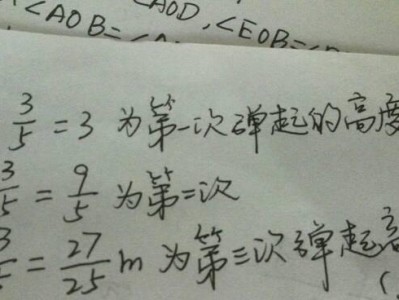 <AOB=∠A
∠AOD, <EOB=
3/5 = 3 为第一次弹起的高度
3/5 = 9/5 为第二次
= 27/25 m 为第三次弹起高